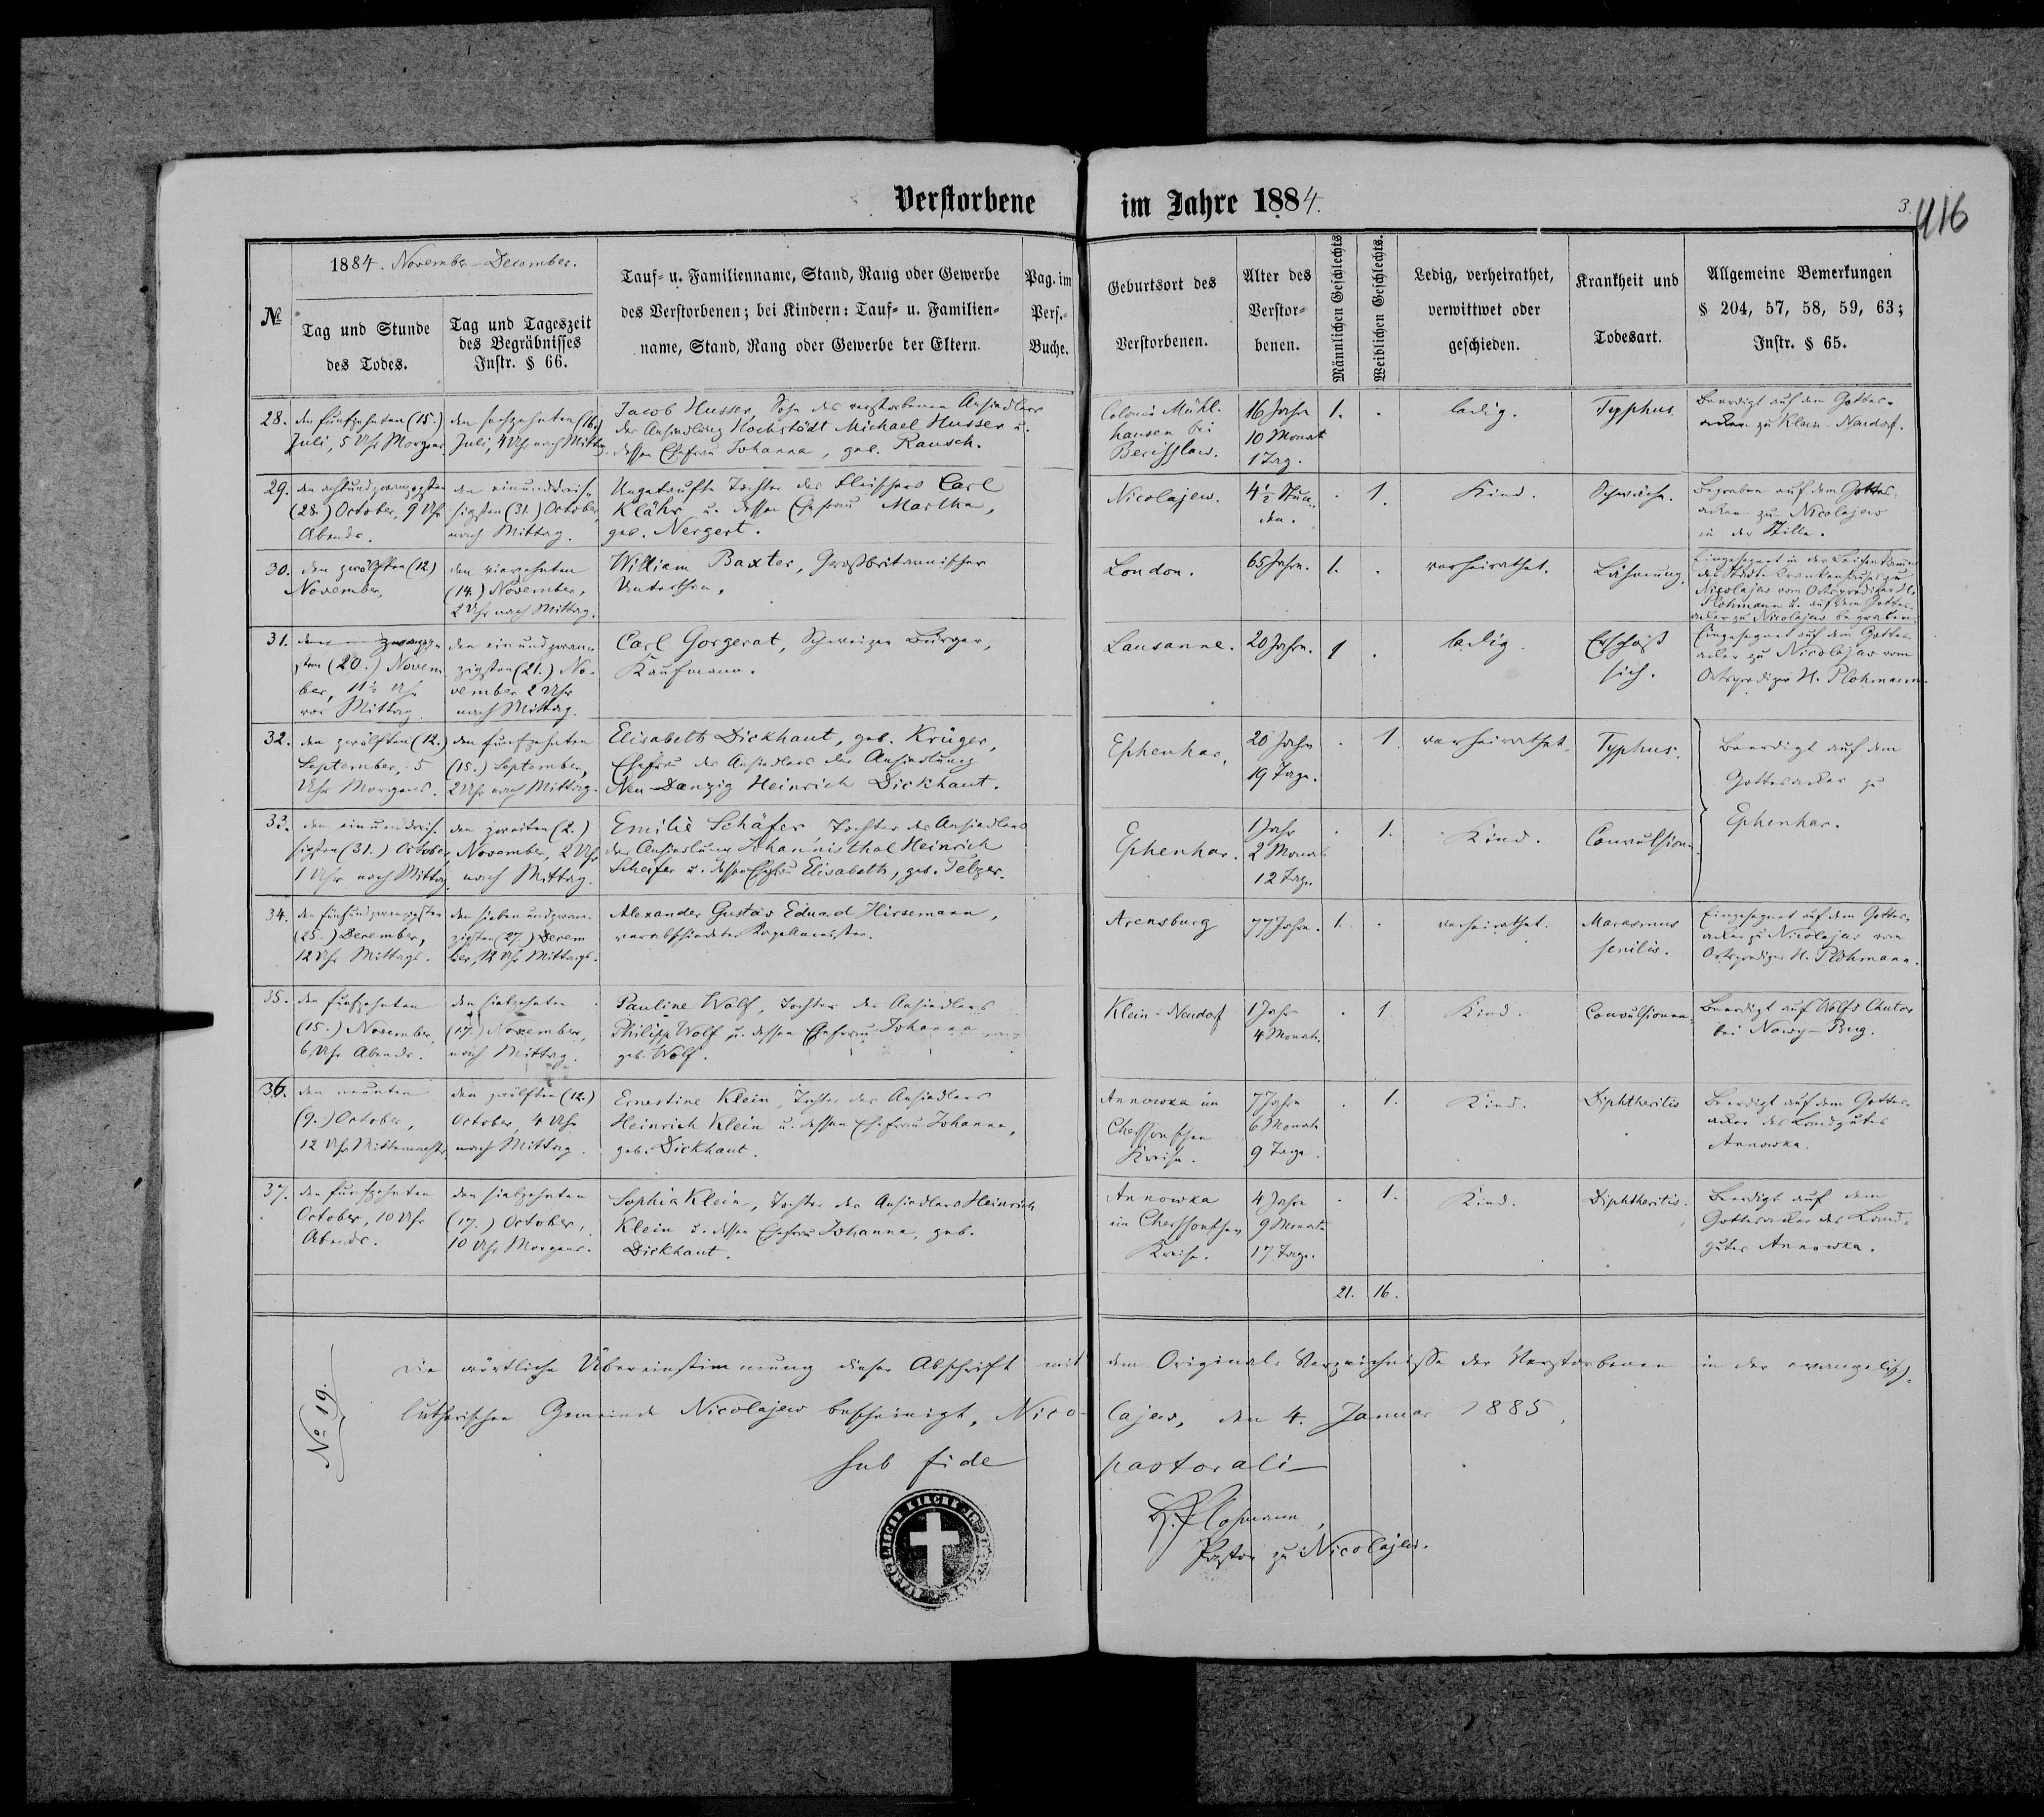 Verstorbene im Jahre 1884.
3.
416
1884. November-December.
№
Tag und Stunde
des Todes.
Tag und Tageszeit
des Begräbnisses
Instr. § 66.
Tauf- u. Familienname, Stand, Rang oder Gewerbe
des Verstorbenen; bei Kindern: Tauf- u. Familien-
name, Stand, Rang oder Gewerbe der Eltern.
Pag. im
Pers.-
Buche.
Geburtsort des
Verstorbenen.
Alter des
Verstor-
benen.
Männlichen Geschlechts
Weiblichen Geschlechts.
Ledig, verheirathet,
verwittwet oder
geschieden.
Krankheit und
Todesart.
Allgemeine Bemerkungen
§ 204, 57, 58, 59, 63;
Instr. § 65.
28.
den fünfzehnten (15.)
Juli, 5 Uhr Morgens
den sechzehnten (16.)
Juli, 4 Uhr nach Mittag.
Jacob Husser, Sohn des verstorbenen Ansiedlers
der Ansiedlung Hochstädt Michael Husser u.
dessen Ehefrau Johanna, geb. Rausch.
Colonie Mühl-
hausen bei
Berisslaw.
16 Jahre
10 Monate
1 Tag.
1.
.
ledig.
Typhus
Beerdigt auf dem Gottes-
acker zu Klein-Neudorf.
29.
den achtundzwanzigsten
(28.) October, 9 Uhr
Abends.
den einunddreis-
sigsten (31.) October,
nach Mittag.
Ungetaufte Tochter des Fleischers Carl
Klähr u. dessen Ehefrau Martha,
geb. Nergert.
Nicolajew.
4½ Stun-
den.
.
1.
Kind.
Schwäche.
Begraben auf dem Gottes-
acker zu Nicolajew
in der Stille.
30.
den zwölften (12.)
November,
den vierzehnten
(14.) November,
2 Uhr nach Mittag.
William Baxter, Grossbritannischer
Unterthan,
London.
65 Jahre.
1.
.
verheirathet.
Lähmung.
Eingesegnet in der
des Stadt-Krankenhauses zu
Nicolajew vom Ortsprediger H.
Plohmann u. auf dem Gottes-
acker zu Nicolajew begraben.
31.
den zwanzig-
sten (20.) Novem-
ber, 11½ Uhr
vor Mittag.
den einundzwan-
zigsten (21.) No-
vember 2 Uhr
nach Mittag.
Carl Gorgerat, Schweizer Bürger,
Kaufmann.
Lausanne.
20 Jahre.
1
.
ledig.
Erschoß
sich.
Eingesegnet auf dem Gottes-
acker zu Nicolajew vom
Ortsprediger H. Plohmann.
32.
den zwölften (12.)
September, 5
Uhr Morgens.
den fünfzehnten
(15.) September,
2 Uhr nach Mittag.
Elisabeth Dickhaut, geb. Krüger,
Ehefrau des Ansiedlers der Ansiedlung
Neu-Danzig Heinrich Dickhaut.
Ephenhar,
20 Jahre
19 Tage.
.
1.
verheirathet.
Typhus.
Beerdigt auf dem
Gottesacker zu
Ephenhar.
33.
den einunddreis-
sigsten (31.) October,
1 Uhr nach Mittag.
den zweiten (2.)
November, 2 Uhr
nach Mittag.
Emilie Schäfer, Tochter des Ansiedlers
der Ansiedlung Johannisthal Heinrich
Schäfer u. dessen Ehefrau Elisabeth, geb. Telzer.
Ephenhar.
1 Jahr
2 Monate
12 Tage.
.
1.
Kind.
Convulsionen.
34.
den fünfundzwanzigsten
(25.) December,
12 Uhr Mittags.
den siebenundzwan-
zigsten (27.) Decem
ber, 12 Uhr Mittags.
Alexander Gustav Eduard Hirsemann,
verabschiedeter Kapellmeister.
Arensburg
77 Jahre.
1.
.
verheirathet.
Marasmus
senilis.
Eingesegnet auf dem Gottes-
acker zu Nicolajew vom
Ortsprediger H. Plohmann.
35.
den fünfzehnten
(15.) November,
6 Uhr Abends.
den siebzehnten
(17.) November,
nach Mittag.
Pauline Wolf, Tochter des Ansiedlers
Philipp Wolf u. dessen Ehefrau Johanna
geb. Wolf.
Klein-Neudorf
1 Jahr
4 Monate.
.
1.
Kind.
Convulsionen.
Beerdigt auf Wolfs Chutor
bei Nowy-Bug.
36.
den neunten
(9.) October,
12 Uhr Mitternachts
den zwölften (12.)
October, 4 Uhr
nach Mittag.
Ernestine Klein, Tochter des Ansiedlers
Heinrich Klein u. dessen Ehefrau Johanna,
geb. Dickhaut.
Annowka im
Cherssonschen
Kreise.
7 Jahre
6 Monate
9 Tage.
.
1.
Kind.
Diphtheritis
Beerdigt auf dem Gottes-
acker des Landgutes
Annowka.
37.
den fünfzehnten
October, 10 Uhr
Abends.
den siebzehnten
(17.) October,
10 Uhr Morgens.
Sophia Klein, Tochter des Ansiedlers Heinrich
Klein u. dessen Ehefrau Johanna, geb.
Dickhaut.
Annowka
im Cherssonschen
Kreise.
4 Jahre
9 Monate
17 Tage.
.
1.
Kind.
Diphtheritis.
Beerdigt auf dem
Gottesacker des Land-
gutes Annowka.
21. 16.
№ 19.
Die wörtliche Übereinstimmung dieser Abschrift mit dem Original-Verzeichnisse der Verstorbenen in der evangelisch-
lutherischen Gemeinde Nicolajew bescheinigt, Nicolajew, den 4. Januar 1885.
sub fide pastorali
H. Plohmann,
Pastor zu Nicolajew.
EVANGELISCHE KIRCHE